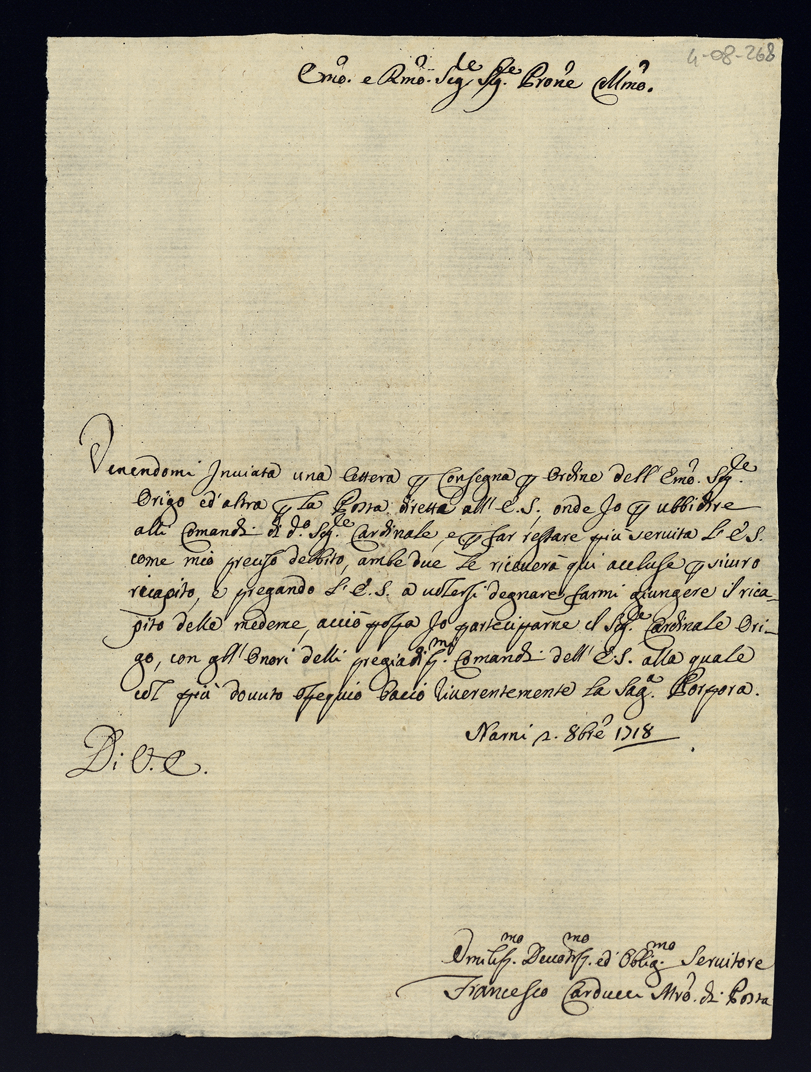 4-08-268
Emo. e Rmo. Sigre Sigre Prone Clmo.
Venendomi Inviata una lettera p Consegna p Ordine dell'Emo. Sigre
Origo ed altra p La Posta diretta all'E.S., onde Jo p ubbidire
alli Comandi di do Sigre Cardinale, e p far restare più servita L'E.S.
come mio preciso debbito, ambe due Le riceverà qui accluse p sicuro
recapito, e pregando L'E.S. a volersi degnare farmi giungere il rica-
pito delle medeme, acciò possa Jo parteciparne il Sigre Cardinale Ori-
go, con gl'Onori delli pregiadissmi Comandi dell'E.S. alla quale
col più dovuto ossequio bacio riverentemente La Saga. Porpora.
Narni 2. 8bre 1718
Di V. E.
Umilissmo Devotissmo ed Obligmo Servitore
Francesco Carducci Mro. di Posta